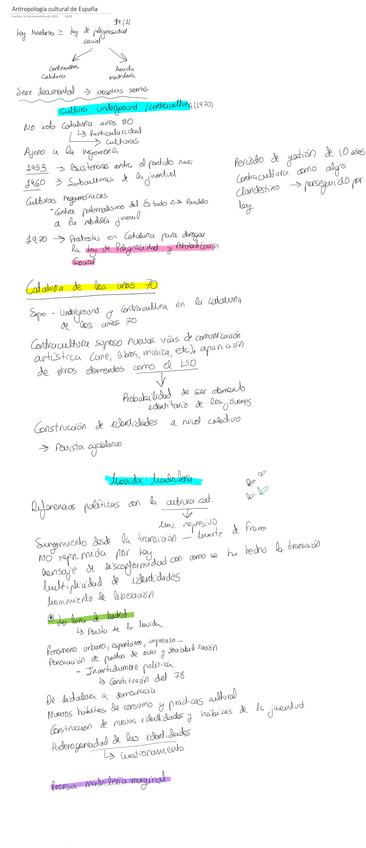 Antropología cultural de España
martes, 14 de noviembre de 2023
Ley de peligrosidad
social
Contracultura
Catalana
Movida
madrileña
Serie documental → Nosotros somos
Cultura underground / contracultura (1970)
No solo Cataluña años 80
↳ Particularidad
↳ culturas
Ajeno a la hegemonía
1959 → Resistencias contra el partido nazi
1960 → Subculturas de la juventud
Culturas hegemónicas
- Contra paternalismo del Estado ↔ Paralelo
a la rebeldía juvenil
1970 → Protestas en Cataluña para derogar
la Ley de Peligrosidad y Rehabilitación
Social
Periodo de gestión de 10 años
Contracultura como algo
clandestino → perseguido por
ley
Cataluña de los años 70
Expo - Underground y contracultura en la Cataluña
de los años 70
Contracultura supuso nuevas vías de comunicación
artística (cine, libros, música, etc), aparición
de otros elementos como el LSD
Probabilidad de ser elemento
identitario de los jóvenes
Construcción de identidades a nivel colectivo
→ Revista ajoblanco
Movida Madrileña
Diferencias políticas con la contracultura cat.
Surgimiento desde la transición — muerte de Franco
No reprimida por ley
Mensaje de disconformidad con como se ha hecho la transición
Multiplicidad de identidades
Movimiento de liberación
La luna de Madrid
↳ Revista de la movida
Fenómeno urbano, espontáneo,
de ocio y sociabilización
- Incertidumbre política
↳ Constitución del 78
De dictadura a democracia
Nuevos hábitos de consumo y prácticas cultural
Construcción de nuevas identidades y hábitos de la juventud
Heterogeneidad de las identidades
↳ Cuestionamiento
Prensa madrileña marginal